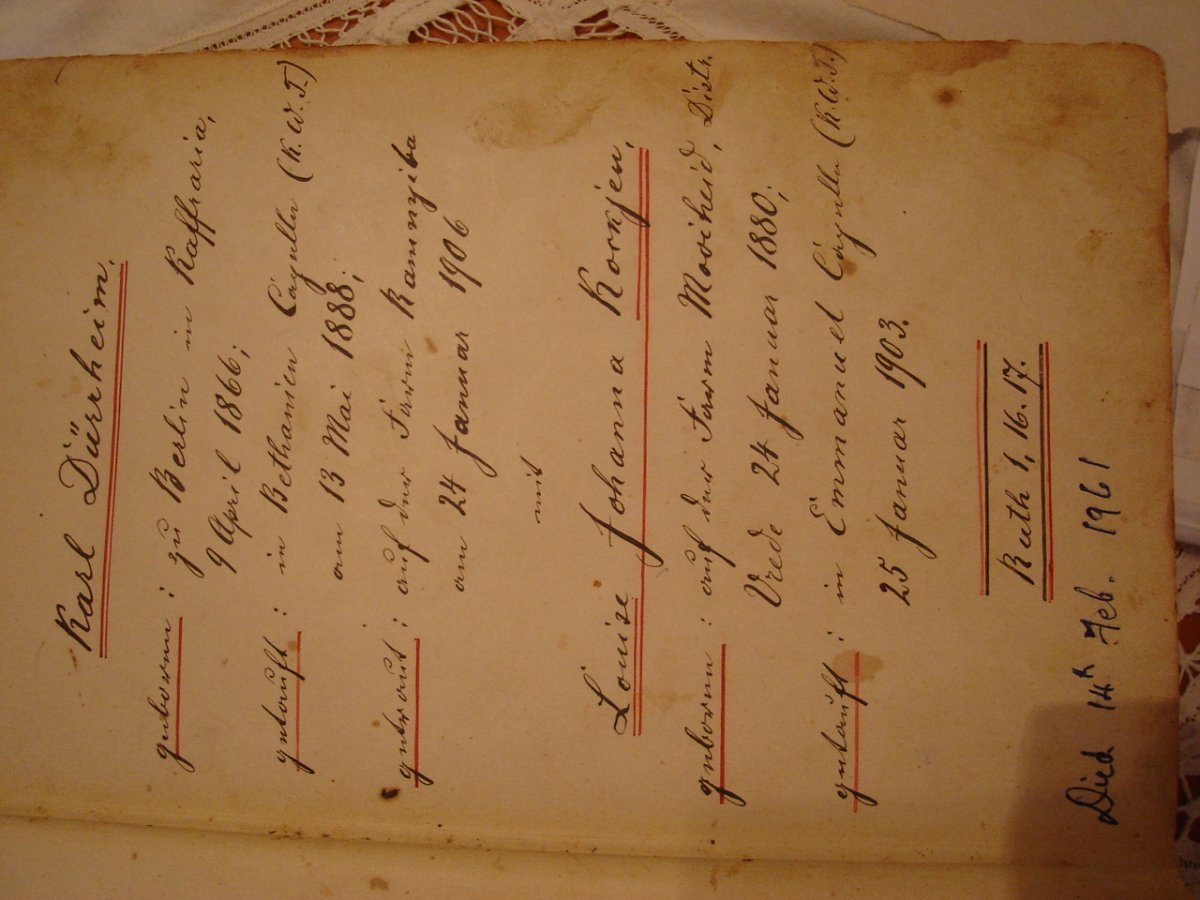 Karl Dürrheim,
geboren : zu Berlin in Kaffraria,
9 April 1866;
getauft : in Bethanien Capelle (K.W.T.)
am 13 Mai 1888;
getraut : auf der Farm Kamnyiba
am 24 Januar 1906
mit
Louise Johanna Kookjen,
geboren : auf der Farm Mooiheid, Distr.
Vrede 24 Januar 1880;
getauft : in Emmanuel Capelle (K.W.T.)
25 Januar 1903.
Ruth 1, 16. 17.
Died 14th Feb. 1961